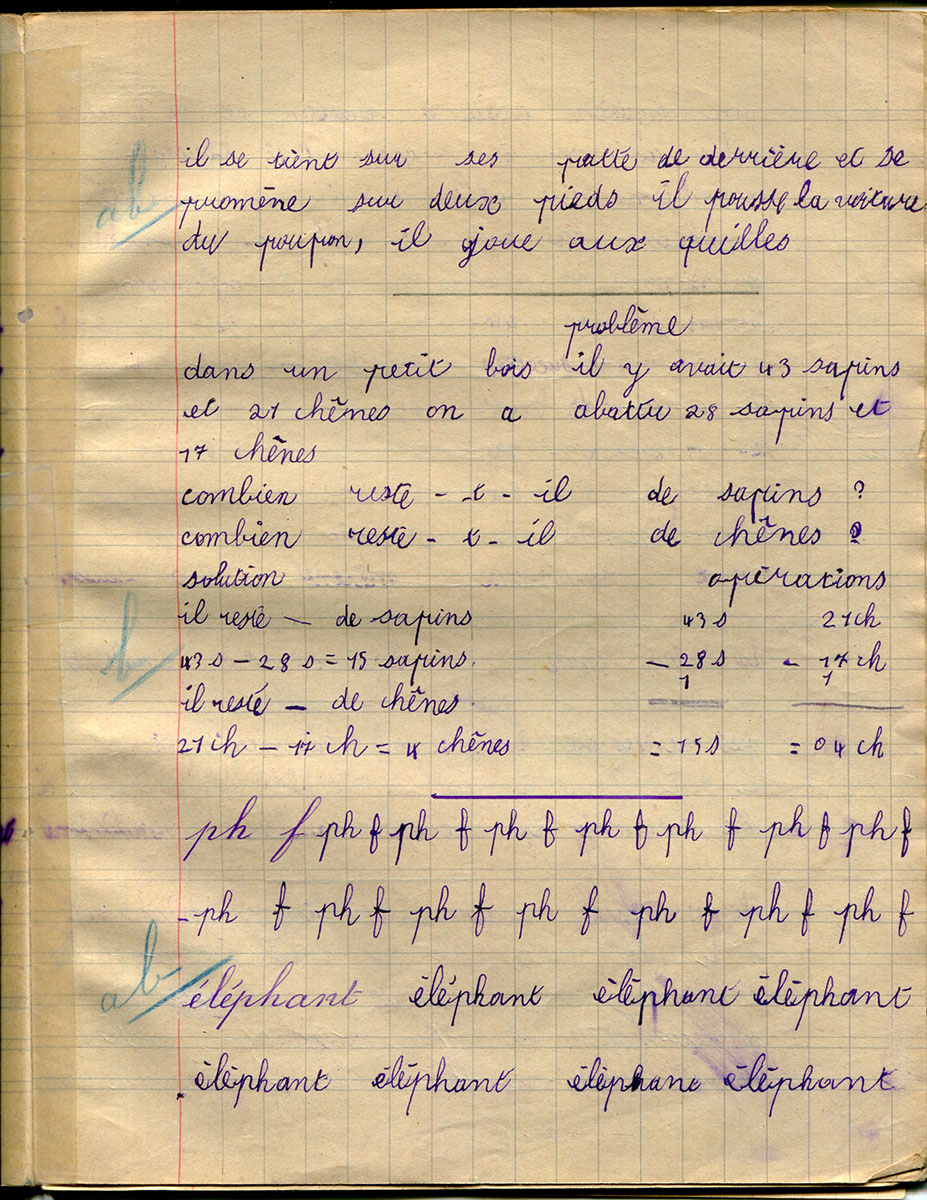 ab
il se tient sur ses patte de derrière et se
promène sur deux pieds il pousse la voiture
du poupon, il joue aux quilles
problême
dans un petit bois il y avait 43 sapins
et 21 chênes on a abattu 28 sapins et
17 chênes
combien reste - t - il de sapins ?
combien reste - t - il de chênes ?
solution opérations
il reste — de sapins 43 s 21 ch
b 43 s - 28 s = 15 sapins. - 28 s - 17 ch
1 1
il reste — de chênes.
21 ch - 17 ch = 4 chênes = 15 s = 04 ch
ph f ph f ph f ph f ph f ph f ph f ph f
- ph f ph f ph f ph f ph f ph f ph f
ab éléphant éléphant éléphant éléphant
éléphant éléphant éléphant éléphant